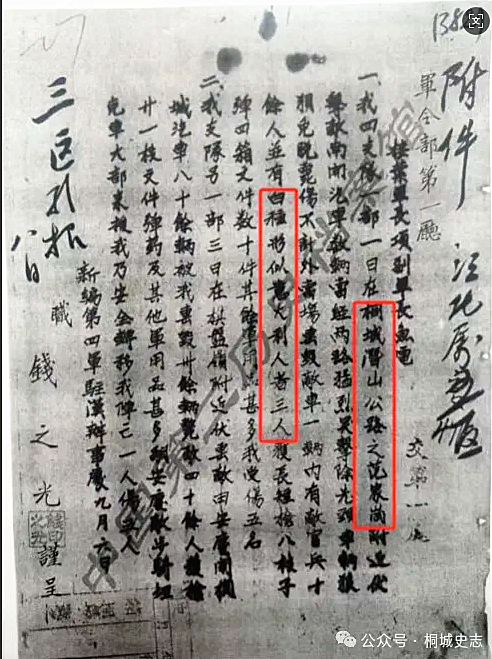 附件
軍令部第一廳
交第一處
接葉軍長項副軍長魚電
一、我四支隊部一日在桐城潛山公路之范家崗附近伏
擊敵南開汽車數輛當經兩路猛烈夾擊除先頭車輛狼
狽免脫斃傷不計外當場毀敵車一輛內有敵官兵十
餘人並有白種形似意大利人者三人獲長短槍八枝子
彈四箱文件數十件其餘軍用品甚多我受傷五名
二、我支隊另一部三日在棋盤嶺附近伏擊敵由安慶開
城汽車八十餘輛被我毀卅餘輛斃敵四十餘人獲槍
廿一枝文件彈药及其他軍用品甚多
車大部來援我乃安全轉移我陣亡一人傷五人
新編第四軍駐漢辦事處九月六日
職錢之光謹呈
八日
中国第二历史档案馆
公众号·桐城史志